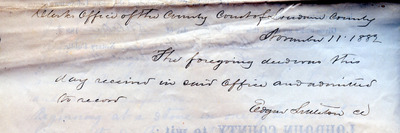 Clerks Office of the County Court of Loudoun County
November 11. 1882
The foregoing deed was this
day received in said Office and admitted
to record
Edgar Littleton cc
COUNTY to wit: